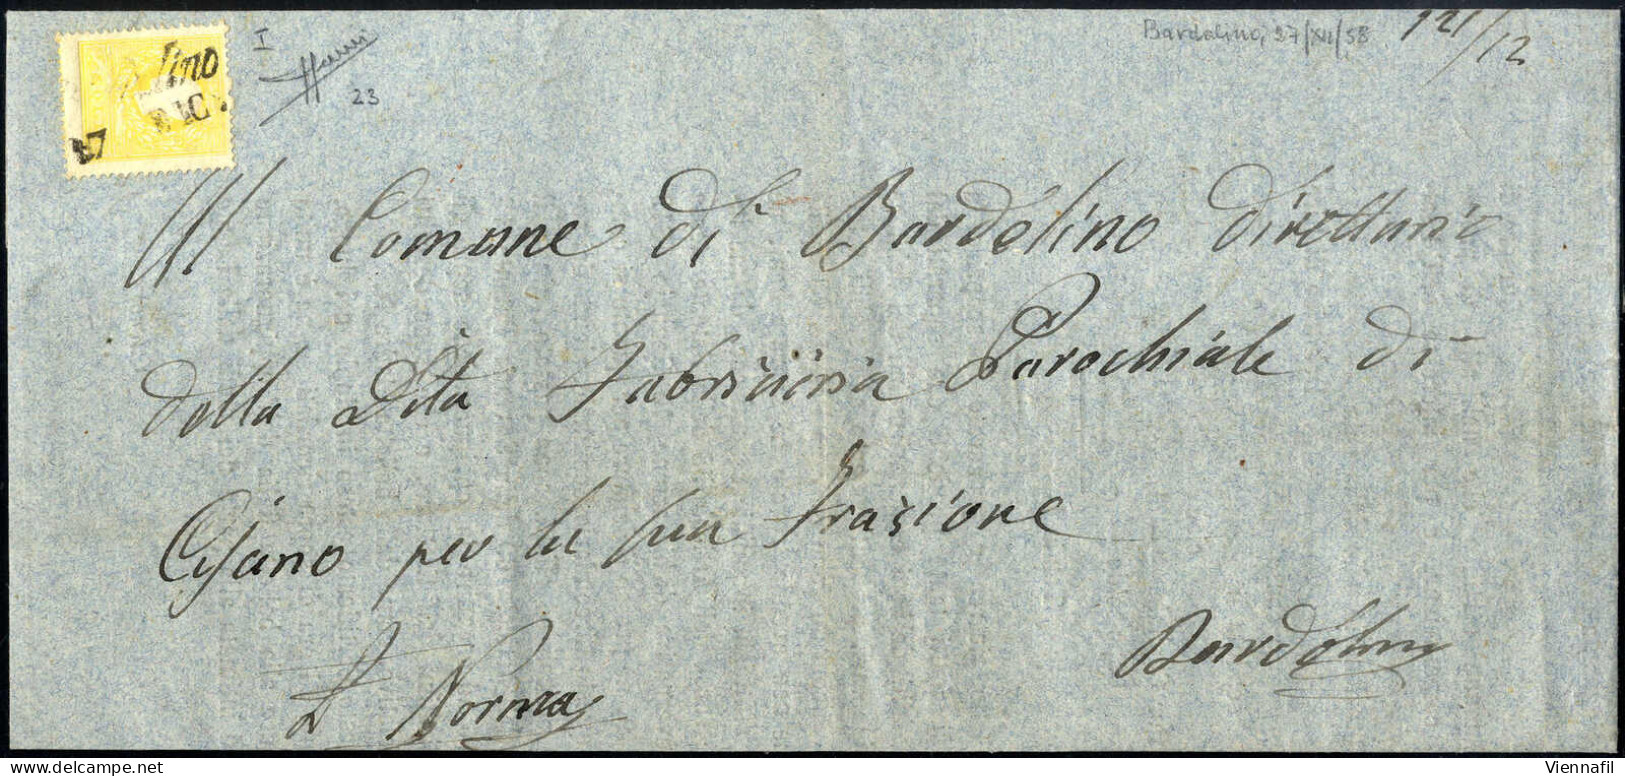 lino
DIC
27
I
23
Bardolino, 27/XII/58
121/12
Al Comune di Bardolino direttario
della Dita Fabriciera Parochiale di
Cisano per la sua Frazione
Bardolino
Norma
Viennafil